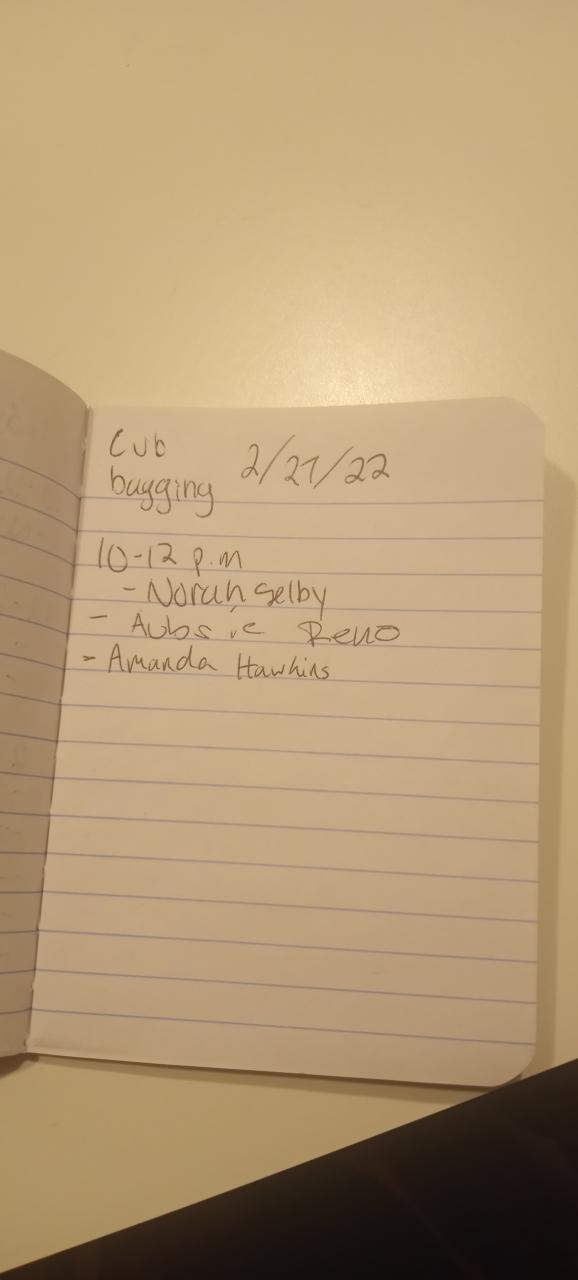 Cub 2/27/22
bagging
10-12 p.m
- Norah Selby
- Aubsie Reno
- Amanda Hawkins